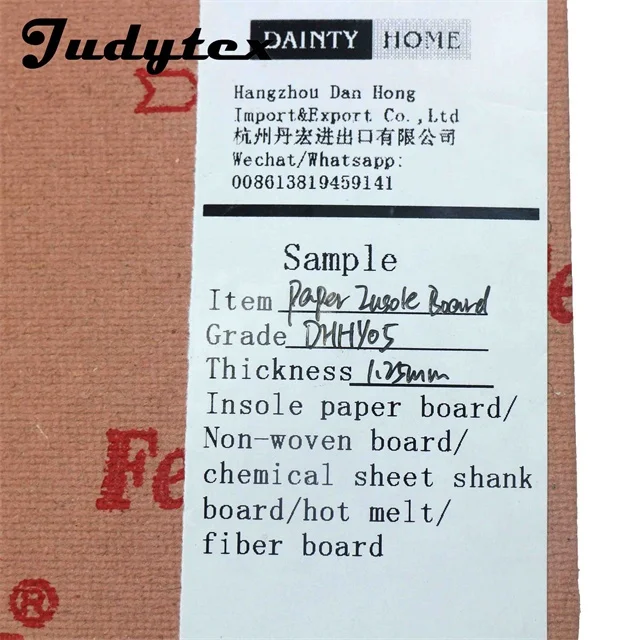 Judytex
DAINTY HOME
Hangzhou Dan Hong
Import&Export Co.,Ltd
杭州丹宏进出口有限公司
Wechat/Whatsapp:
008613819459141
Sample
Item Paper Insole Board
Grade DHHY05
Thickness 1.25mm
Insole paper board/
Non-woven board/
chemical sheet shank
board/hot melt/
fiber board
Fe
®